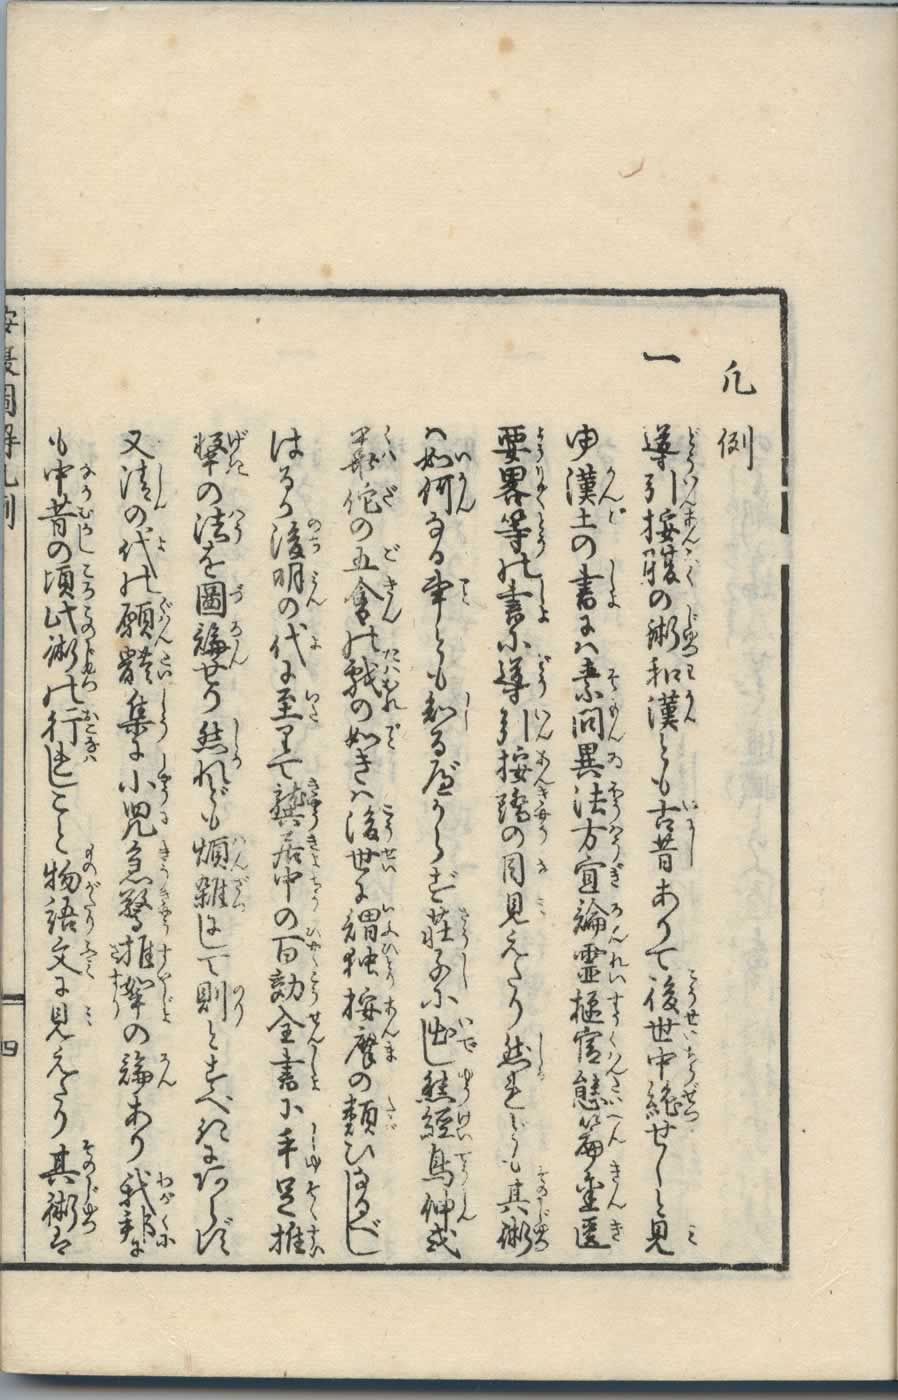 凡例
一 導引按蹻の術和漢とも古昔ありて後世中絶せしと見
ゆ漢土の書にハ素問異法方宜論霊枢官能篇金匱
要畧等の書に導引按蹻の目見えたり然れども其術
ハ如何なる事とも知るべからず荘子に出し熊經鳥伸或
華佗の五禽の戯の如きハ後世に謂独按摩の類ひなるべし
はるか後明の代に至りて龔居中の百効全書に手足推
拏の法を圖論せり然れども煩雑にして則とすべきにあらず
又清の代の願體集に小児急驚推拏の論あり我邦に
も中昔の頃此術の行れしこと物語文に見えたり其術ハ
按腹圖解凡例
四